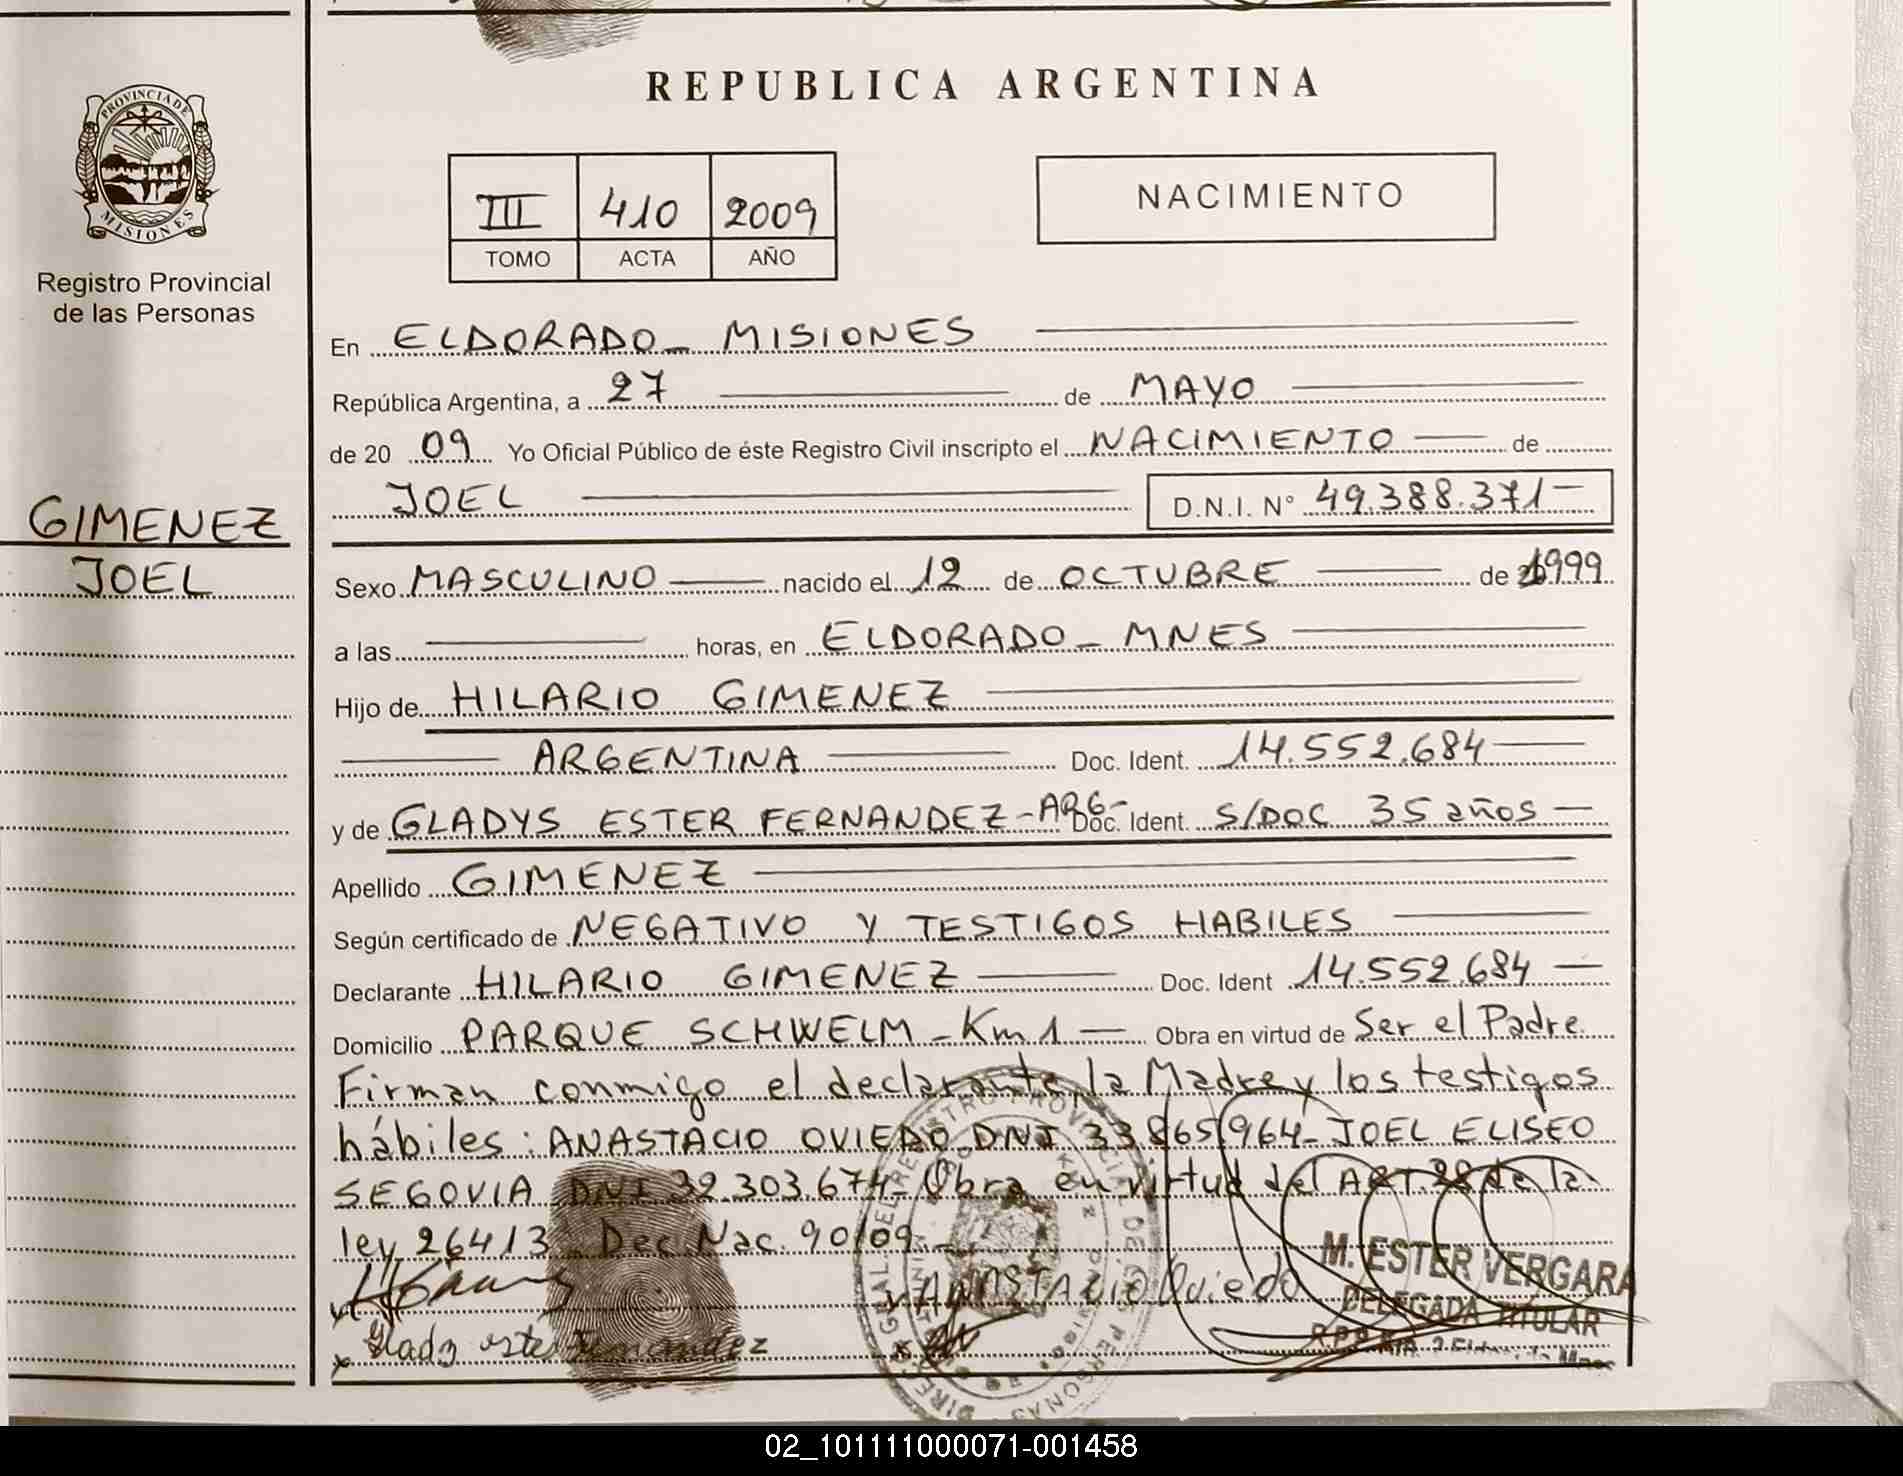 REPUBLICA ARGENTINA
PROVINCIA DE
MISIONES
Registro Provincial
de las Personas
III 410 2009
TOMO ACTA AÑO
NACIMIENTO
En ELDORADO_ MISIONES
República Argentina, a 27 de MAYO
de 20 09 Yo Oficial Público de éste Registro Civil inscripto el NACIMIENTO de
JOEL D.N.I. N° 49.388.371
GIMENEZ
JOEL
Sexo MASCULINO nacido el 12 de OCTUBRE de 1999
a las horas, en ELDORADO_ MNES
Hijo de HILARIO GIMENEZ
ARGENTINA Doc. Ident. 14.552.684
y de GLADYS ESTER FERNANDEZ-ARG- Doc. Ident. S/DOC 35 años
Apellido GIMENEZ
Según certificado de NEGATIVO Y TESTIGOS HABILES
Declarante HILARIO GIMENEZ Doc. Ident 14.552.684
Domicilio PARQUE SCHWELM - Km 1 Obra en virtud de Ser el Padre.
Firman conmigo el declarante, la Madre y los testigos
hábiles: ANASTACIO OVIEDO DNI 33.865.964_ JOEL ELISEO
SEGOVIA DNI 32.303.674_ Obra en virtud del ART. 28 de la
ley 26413 Dec. Nac. 90/09._
x ANASTACIO Oviedo
M. ESTER VERGARA
DELEGADA TITULAR
x Glady ester Fernandez
02_101111000071-001458